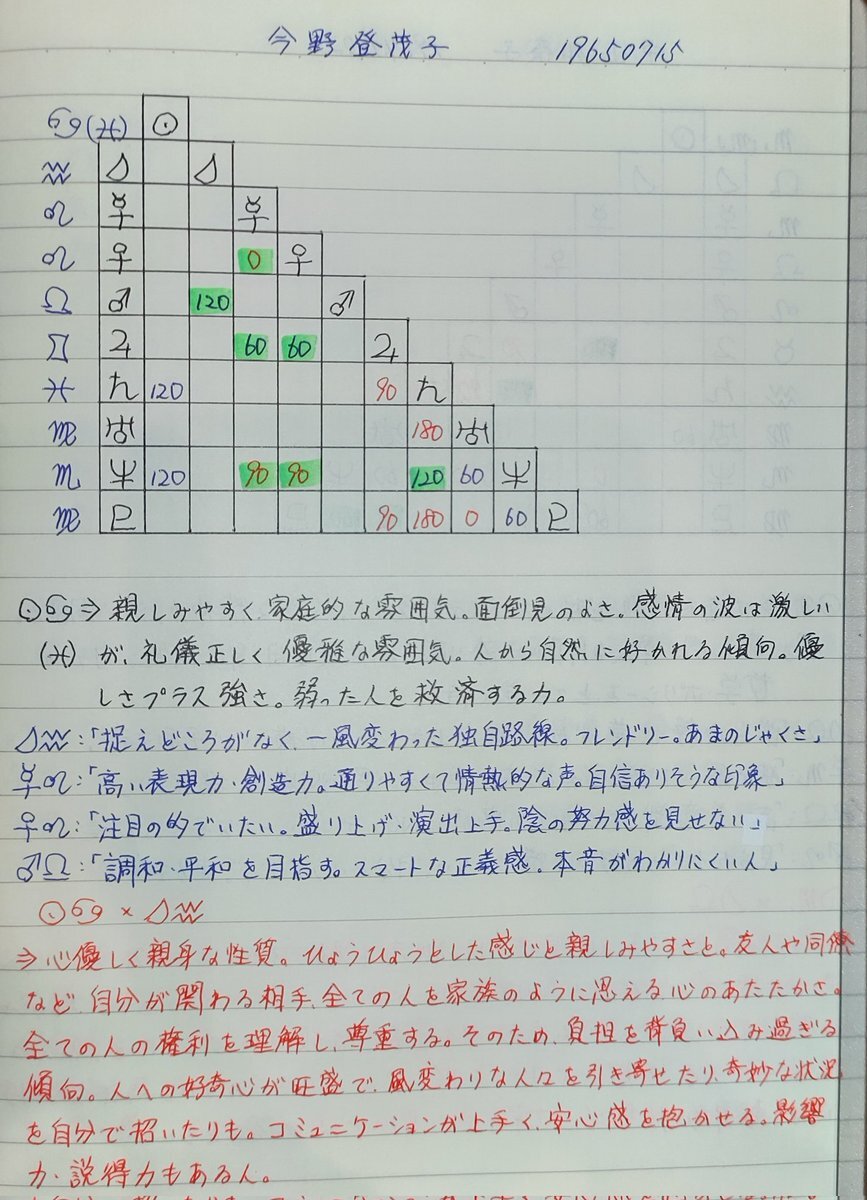 今野登茂子 19650715
♋(♓) ☉
♒ ☽ ☽
♌ ☿ ☿
♌ ♀ 0 ♀
♎ ♂ 120 ♂
♊ ♃ 60 60 ♃
♓ ♄ 120 90 ♄
♍ ♅ 180 ♅
♏ ♆ 120 90 90 120 60 ♆
♍ ♇ 90 180 0 60 ♇
☉♋⇒親しみやすく、家庭的な雰囲気。面倒見のよさ。感情の波は激しい
(♓) が、礼儀正しく優雅な雰囲気。人から自然に好かれる傾向。優
しさプラス強さ。弱った人を救済する力。
☽♒:「捉えどころがなく、一風変わった独自路線。フレンドリー。あまのじゃくさ」
☿♌:「高い表現力・創造力。通りやすくて情熱的な声。自信ありそうな印象」
♀♌:「注目の的でいたい。盛り上げ・演出上手。陰の努力感を見せない」
♂♎:「調和・平和を目指す。スマートな正義感。本音がわかりにくい人」
☉♋×☽♒
⇒心優しく親身な性質。ひょうひょうとした感じと親しみやすさと。友人や同僚
など、自分が関わる相手、全ての人を家族のように思える心のあたたかさ。
全ての人の権利を理解し、尊重する。そのため、負担を背負い込み過ぎる
傾向。人への好奇心が旺盛で、風変わりな人々を引き寄せたり、奇妙な状況
を自分で招いたりも。コミュニケーションが上手く、安心感を抱かせる。影響
力・説得力もある人。